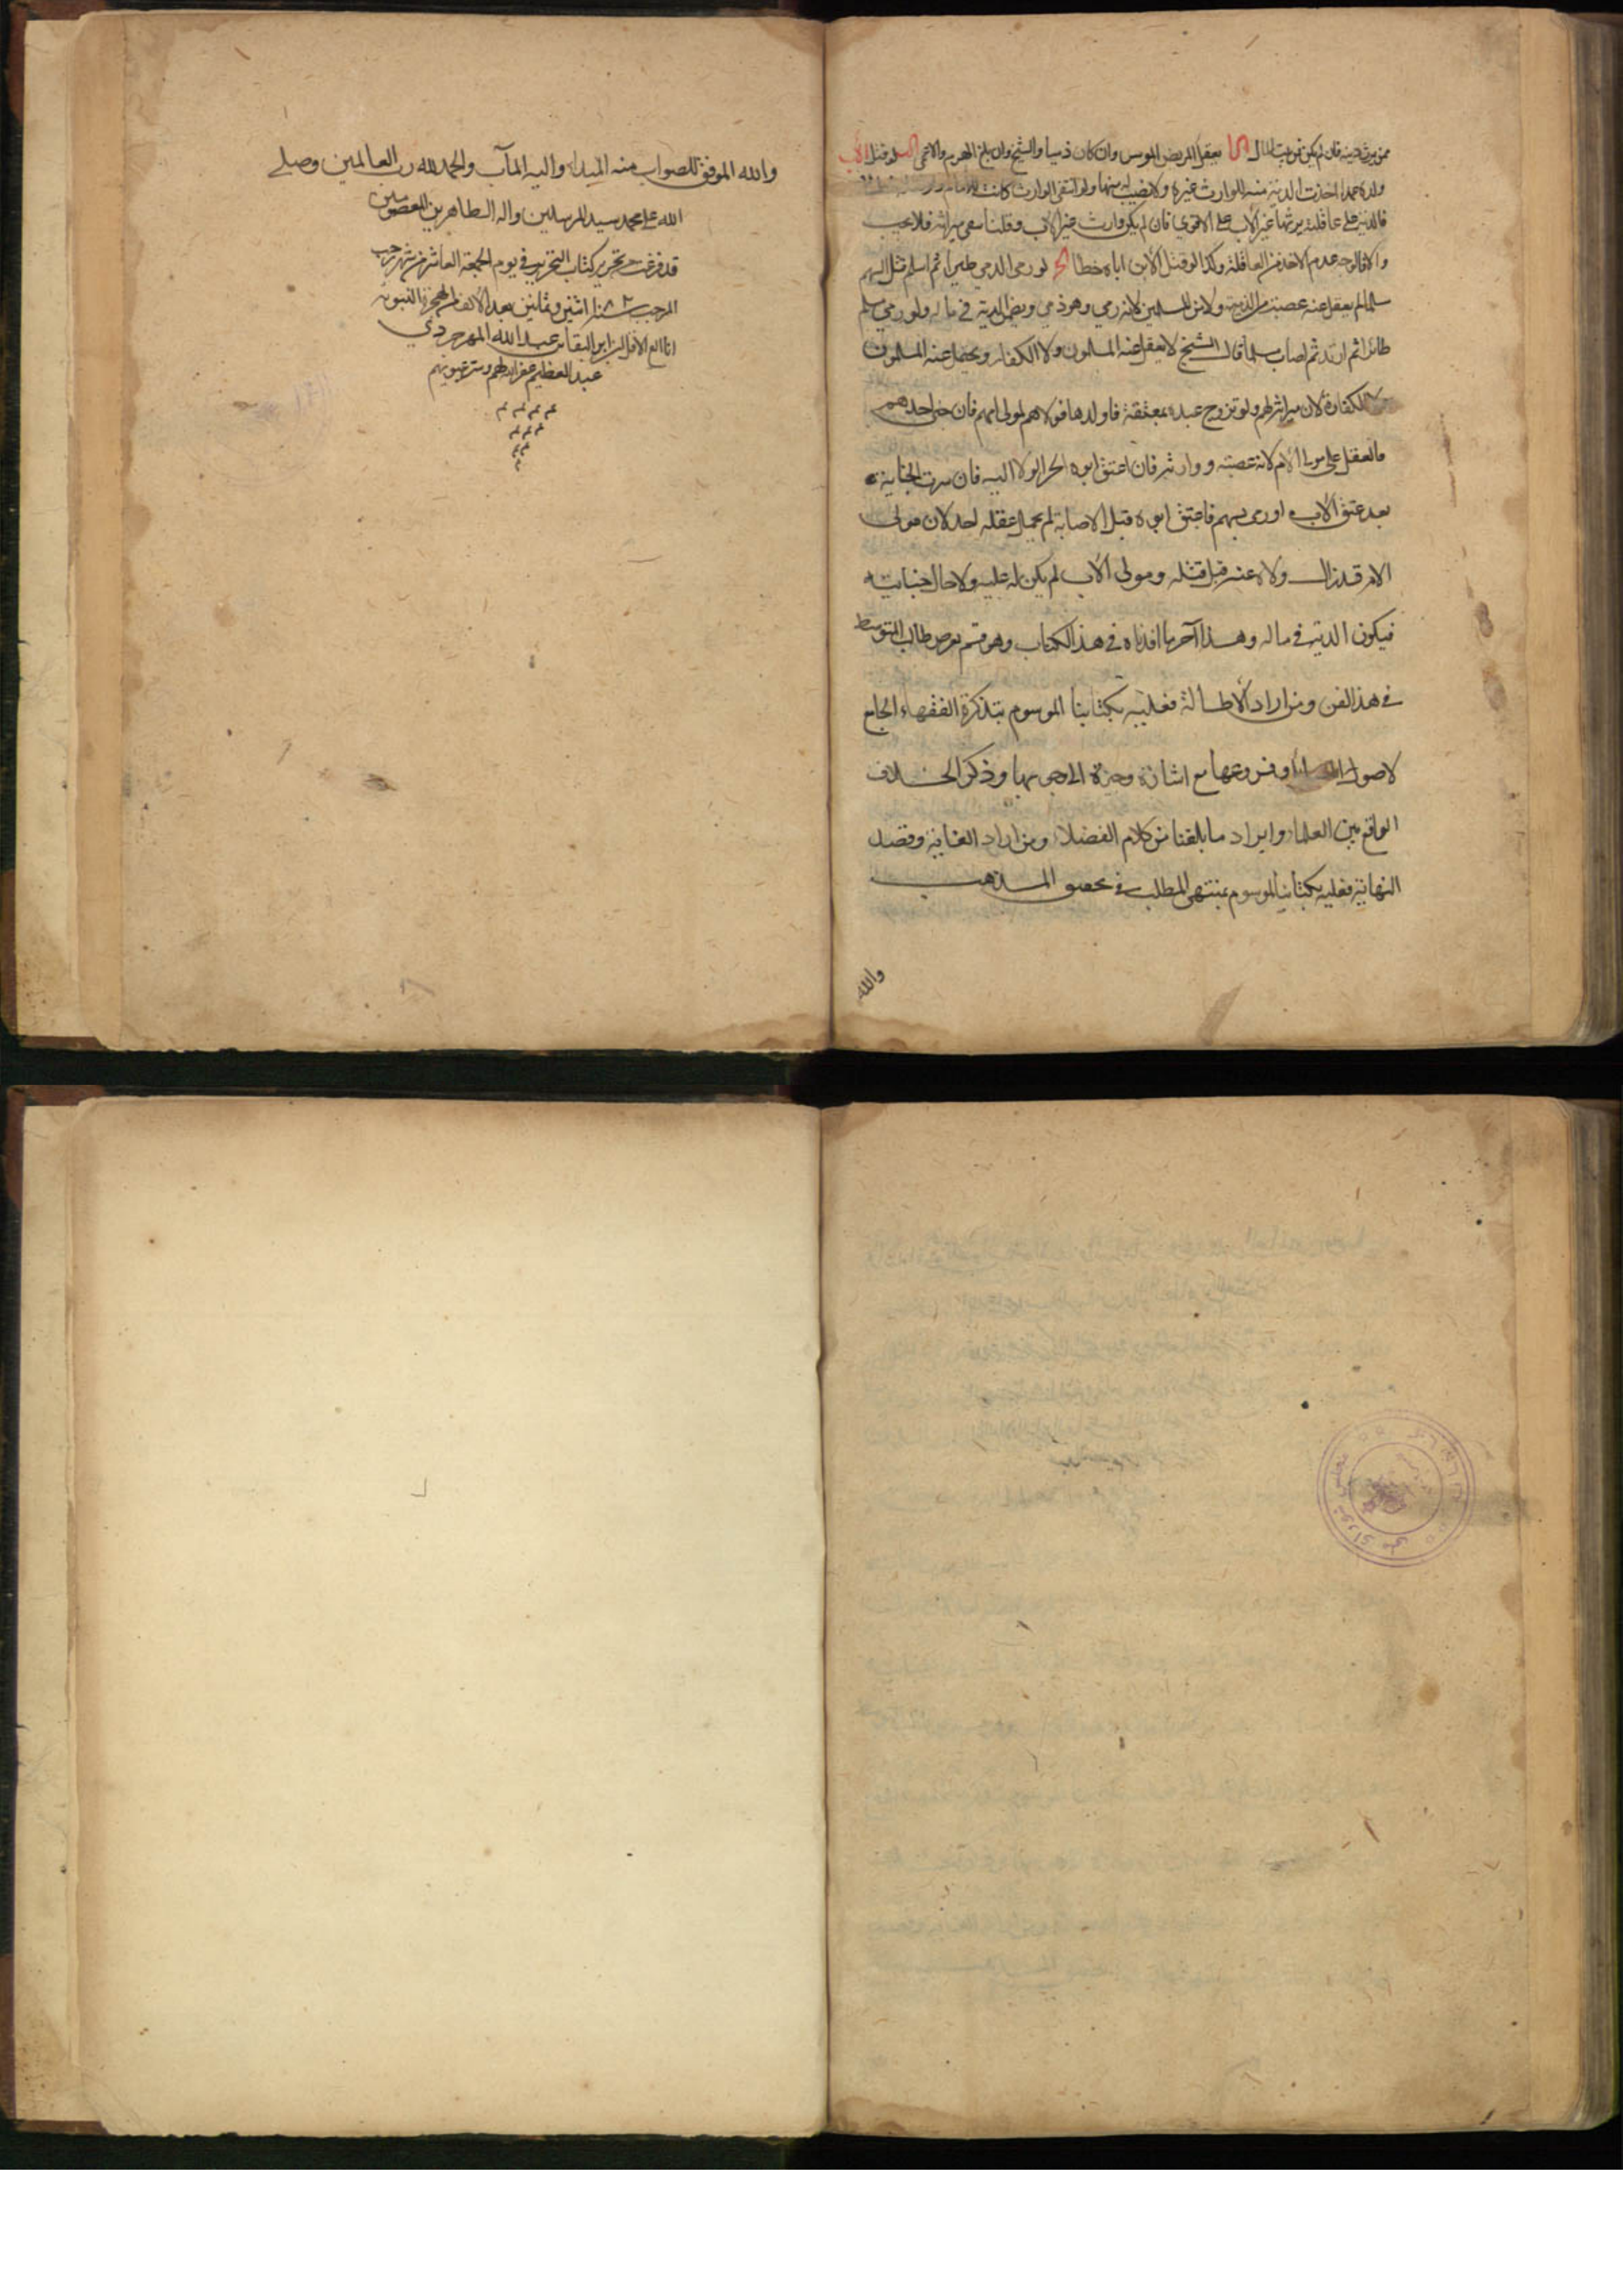 ممن يرث دينه فان لم يكن فمن بيت المال يعقل المريض الموسر وان كان ذميا والشيخ وان بلغ الهرم والاعمى لو قتل الأب
ولده عمدا اخذت الدية منه للوارث غيره ولا نصيب له منها ولو انتفى الوارث كانت للامام
فالدية على عاقلته يرثها غير الأب على الاقوى فان لم يكن وارث غير الأب وقلنا
والا فالوجه عدم الاخذ من العاقلة وكذا لو قتل الأبن اباه خطأ لو رمى الذمي طيرا ثم اسلم فقتل السهم
مسلما لم يعقل عنه عصبته من الذمية ولا من المسلمين لانه رمى وهو ذمي ويضمن الدية في ماله ولو رمى مسلم
طائرا ثم ارتد ثم اصاب مسلما قال الشيخ لا يعقل عنه المسلمون ولا الكفار ويحتمل عنه المسلمون
لا الكفار لان ميراثه لهم ولو تزوج عبد بمعتقة فاولدها فولاءهم لمولى امهم فان جنى احدهم
فالعقل على مولى الأم لانه عصبته ووارثه فان اعتق ابوه انجر الولاء اليه فان سرت الجناية
بعد عتق الأب او رمى بسهم فاعتق ابوه قبل الاصابة لم يحمل عقله احد لان مولى
الام قد زال ولاؤه عنه قبل قتله ومولى الأب لم يكن له عليه ولاء حال جنايته
فيكون الدية في ماله وهذا آخر ما افدناه في هذا الكتاب وهو قسم يعرض طالب المتوسط
في هذا الفن ومن اراد الأطالة فعليه بكتابنا الموسوم بتذكرة الفقهاء الجامع
لاصول وفروعها مع اشارة وجيزة الى وجوبها وذكر الخلاف
الواقع بين العلماء وايراد ما بلغنا من كلام الفضلاء ومن اراد الغاية وقصد
النهاية فعليه بكتابنا الموسوم بمنتهى المطلب في تحقيق المذهب
والله
والله الموفق للصواب منه المبداء واليه المآب والحمد لله رب العالمين وصلى
الله على محمد سيد المرسلين واله الطاهرين المعصومين
قد فرغت من تحرير كتاب التحرير في يوم الجمعة العاشر من شهر رجب
المرجب سنة اثنين وثمانين بعد الألف من الهجرة النبوية
انا العبد الاقل ابن عبد الله
عبد العظيم غفر الله لهم وستر عيوبهم
مجلس شورای ملی